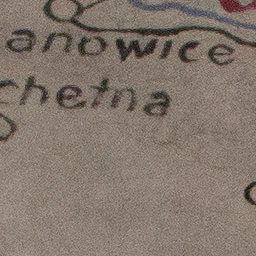 anowice
chetna